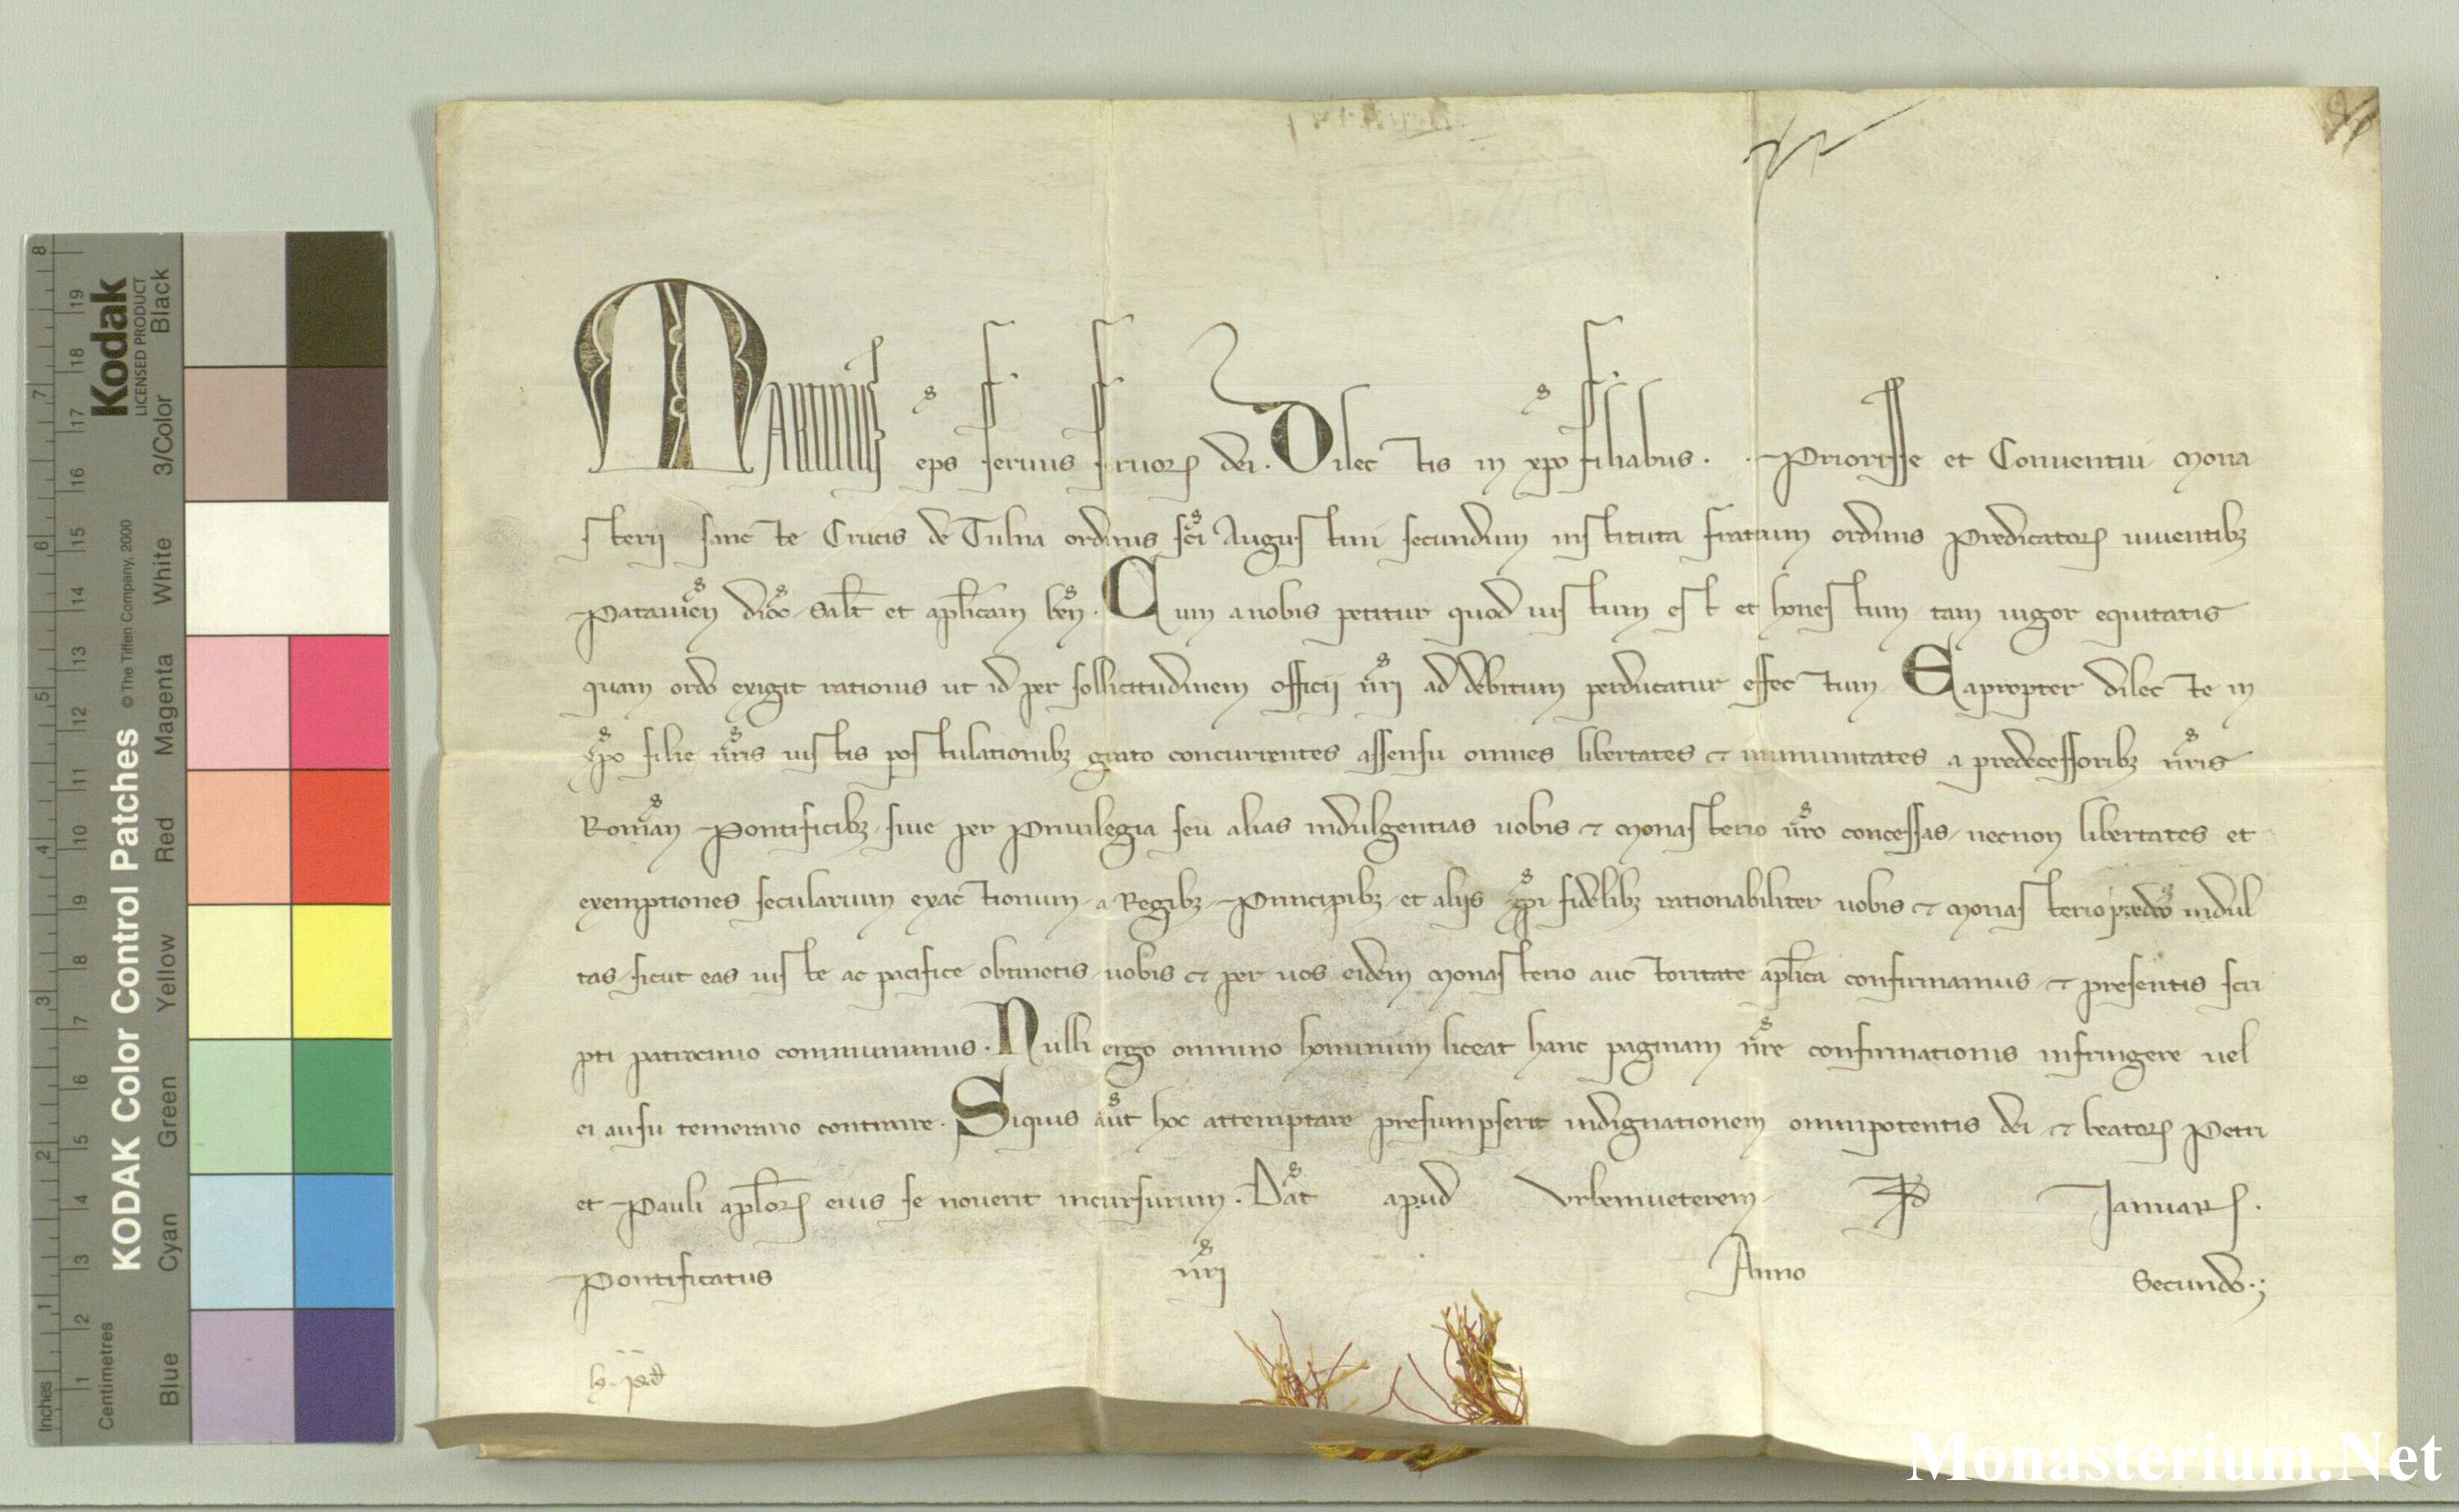 Martinus eps seruus seruoꝝ dei. Dilectis in xpo filiabus . . Priorisse et Conuentui Mona
sterij sancte Crucis de Tulna ordinis sci Augustini secundum instituta fratrum ordinis Predicatoꝝ uiuentibꝫ
Patauien dioc, salt et aplicam ben. Cum a nobis petitur quod iustum est et honestum tam uigor equitatis
quam ordo exigit rationis ut id per sollicitudinem officij nri ad debitum perducatur effectum. Eapropter dilecte in
xpo filie uris iustis postulationibꝫ grato concurrentes assensu omnes libertates ⁊ immunitates a predecessoribꝫ nris
Roman Pontificibꝫ, siue per Priuilegia seu alias indulgentias uobis ⁊ Monasterio uro concessas, necnon libertates et
exemptiones secularium exactionum, a Regibꝫ, Principibꝫ, et alijs xpi fidelibꝫ rationabiliter uobis ⁊ Monasterio predco indul
tas, sicut eas iuste ac pacifice obtinetis, uobis ⁊ per uos eidem Monasterio auctoritate aplica confirmamus, ⁊ presentis scri
pti patrocinio communimus. Nulli ergo omnino hominum liceat hanc paginam nre confirmationis infringere uel
ei ausu temerario contraire. Siquis aut hoc attemptare presumpserit indignationem omnipotentis dei ⁊ beatoꝝ Petri
et Pauli aploꝝ eius se nouerit incursurum. Dat apud Vrbemueterem, Januarꝝ.
Pontificatus nri Anno Secundo.
KODAK Color Control Patches © The Tiffen Company, 2000
Kodak
LICENSED PRODUCT
Inches 1 2 3 4 5 6 7 8
Centimetres 1 2 3 4 5 6 7 8 9 10 11 12 13 14 15 16 17 18 19
Blue Cyan Green Yellow Red Magenta White 3/Color Black
Monasterium.Net